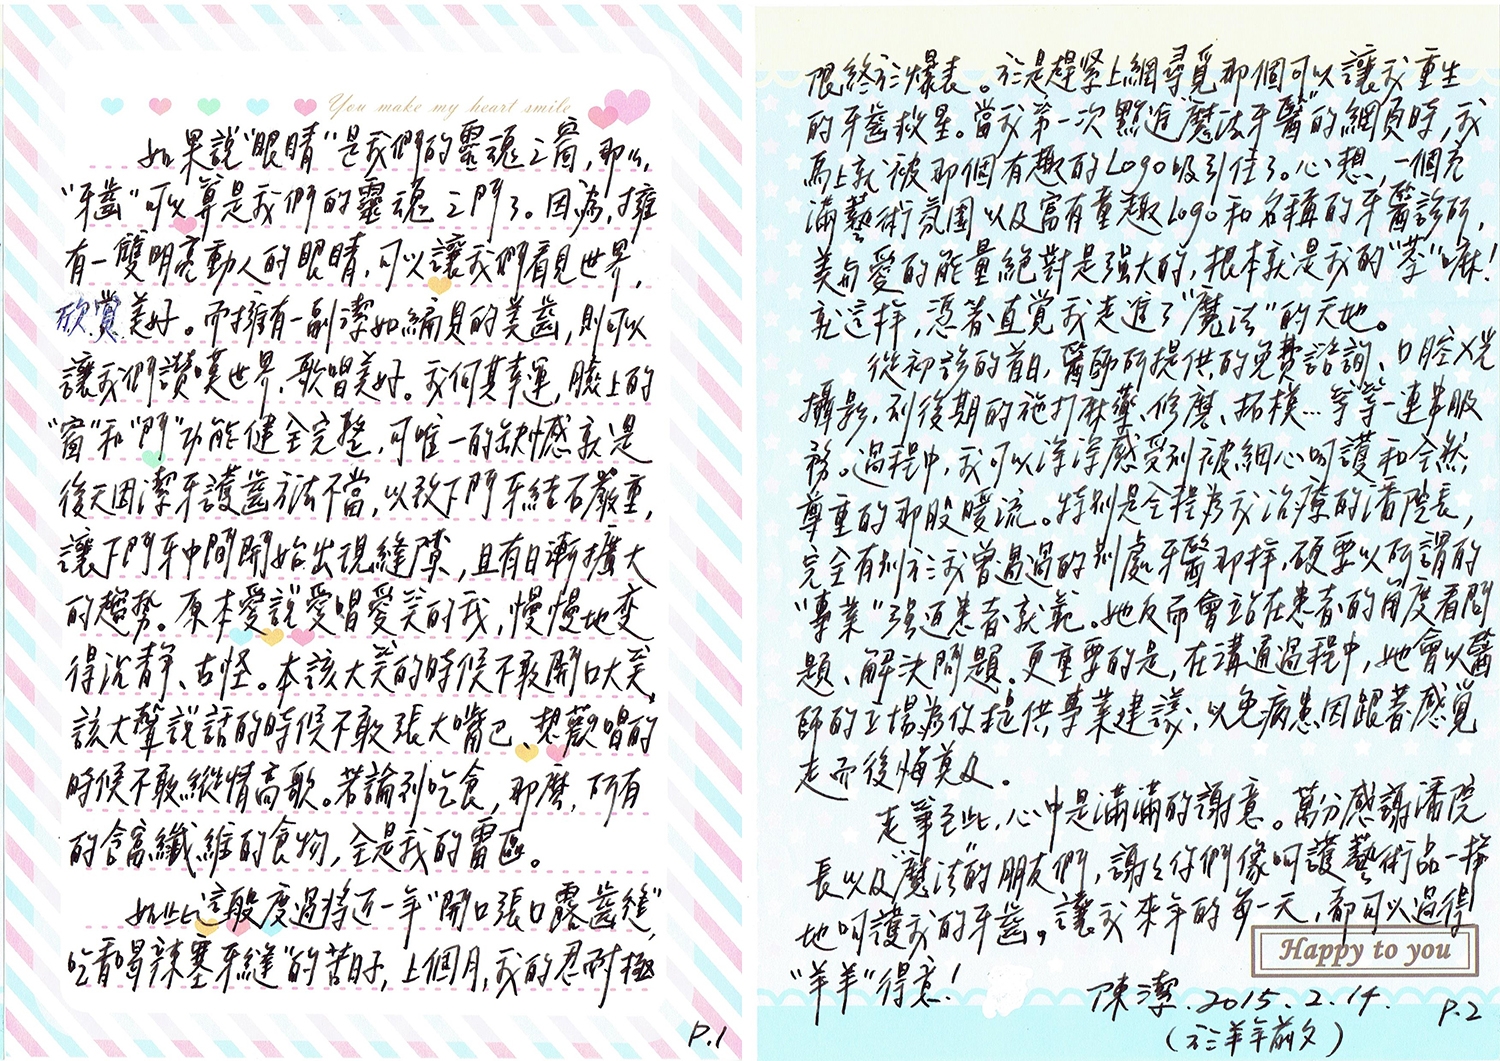 You make my heart smile
如果說"眼睛"是我們的靈魂之窗,那么,
"牙齒"可以算是我們的靈魂之門了。因為,擁
有一雙明亮動人的眼睛,可以讓我們看見世界,
欣賞美好。而擁有一副潔如編貝的美齒,則可以
讓我們讚嘆世界、歌唱美好。我何其幸運,臉上的
"窗"和"門"功能健全完整,可唯一的缺憾就是
後天因潔牙護齒方法不當,以致下門牙結石嚴重,
讓下門牙中間開始出現縫隙,且有日漸擴大
的趨勢。原本愛說愛唱愛笑的我,慢慢地变
得沉靜、古怪。本該大笑的時候不敢開口大笑,
該大聲說話的時候不敢張大嘴巴、想歡唱的
時候不敢縱情高歌。若論到吃食,那麼,所有
的含富纖維的食物,全是我的雷區。
如此這般度過將近一年"開口張口露齒縫",
吃香喝辣塞牙縫"的苦日子,上個月,我的忍耐極
P.1
限終於爆表。於是趕緊上網尋覓那個可以讓我重生
的牙齒救星。當我第一次點進魔法牙醫的網頁時,我
馬上就被那個有趣的Logo吸引住了。心想,一個充
滿藝術氛圍以及富有童趣Logo和名稱的牙醫診所,
美与愛的能量絕對是强大的,根本就是我的"荼"嘛!
就這樣,憑著直覚我走進了"魔法"的天地。
從初診的首日,醫師所提供的免費諮詢、口腔X光
攝影,到後期的施打麻藥、修磨、拓模…等等一連串服
務。過程中,我可以深深感受到被細心呵護和全然
尊重的那股暖流。特別是全程為我治療的潘院長,
完全有別於我曾過過的別處牙醫那樣,硬要以所謂的
"專業"强迫患者就範。她反而會站在患者的角度看問
題、解決問題。更重要的是,在溝通過程中,她會以醫
師的立場為你提供專業建議,以免病患因跟著感覚
走而後悔莫及。
走筆至此,心中是滿滿的謝意。萬分感謝潘院
長以及"魔法"的朋友們,謝謝你們像呵護藝術品一樣
地呵護我的牙齒。讓我來年的每一天,都可以過得
"羊羊"得意!
Happy to you
陳潔.2015.2.14.
(於羊年前夕)
P.2